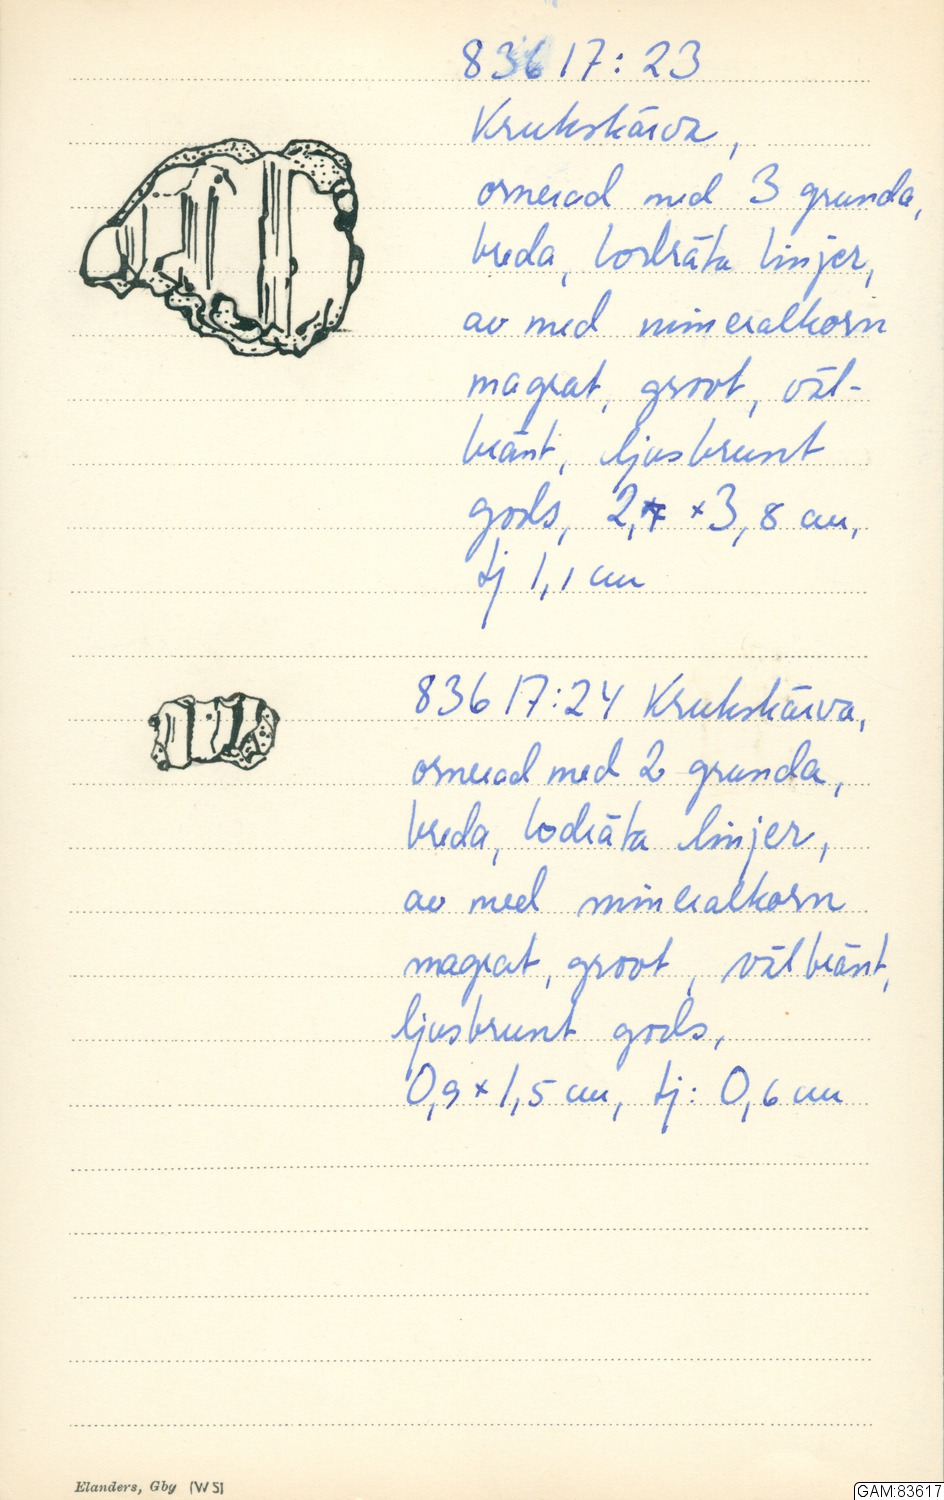 83617:23
Krukskärva,
ornerad med 3 grunda,
breda, lodräta linjer,
av med mineralkorn
magrat, grovt, väl-
bränt, ljusbrunt
gods, 2,7 × 3,8 cm,
tj 1,1 cm
83617:24 Krukskärva,
ornerad med 2 grunda,
breda, lodräta linjer,
av med mineralkorn
magrat, grovt, välbränt,
ljusbrunt gods,
0,9 × 1,5 cm, tj: 0,6 cm
Elanders, Gby (WS)
GAM:83617